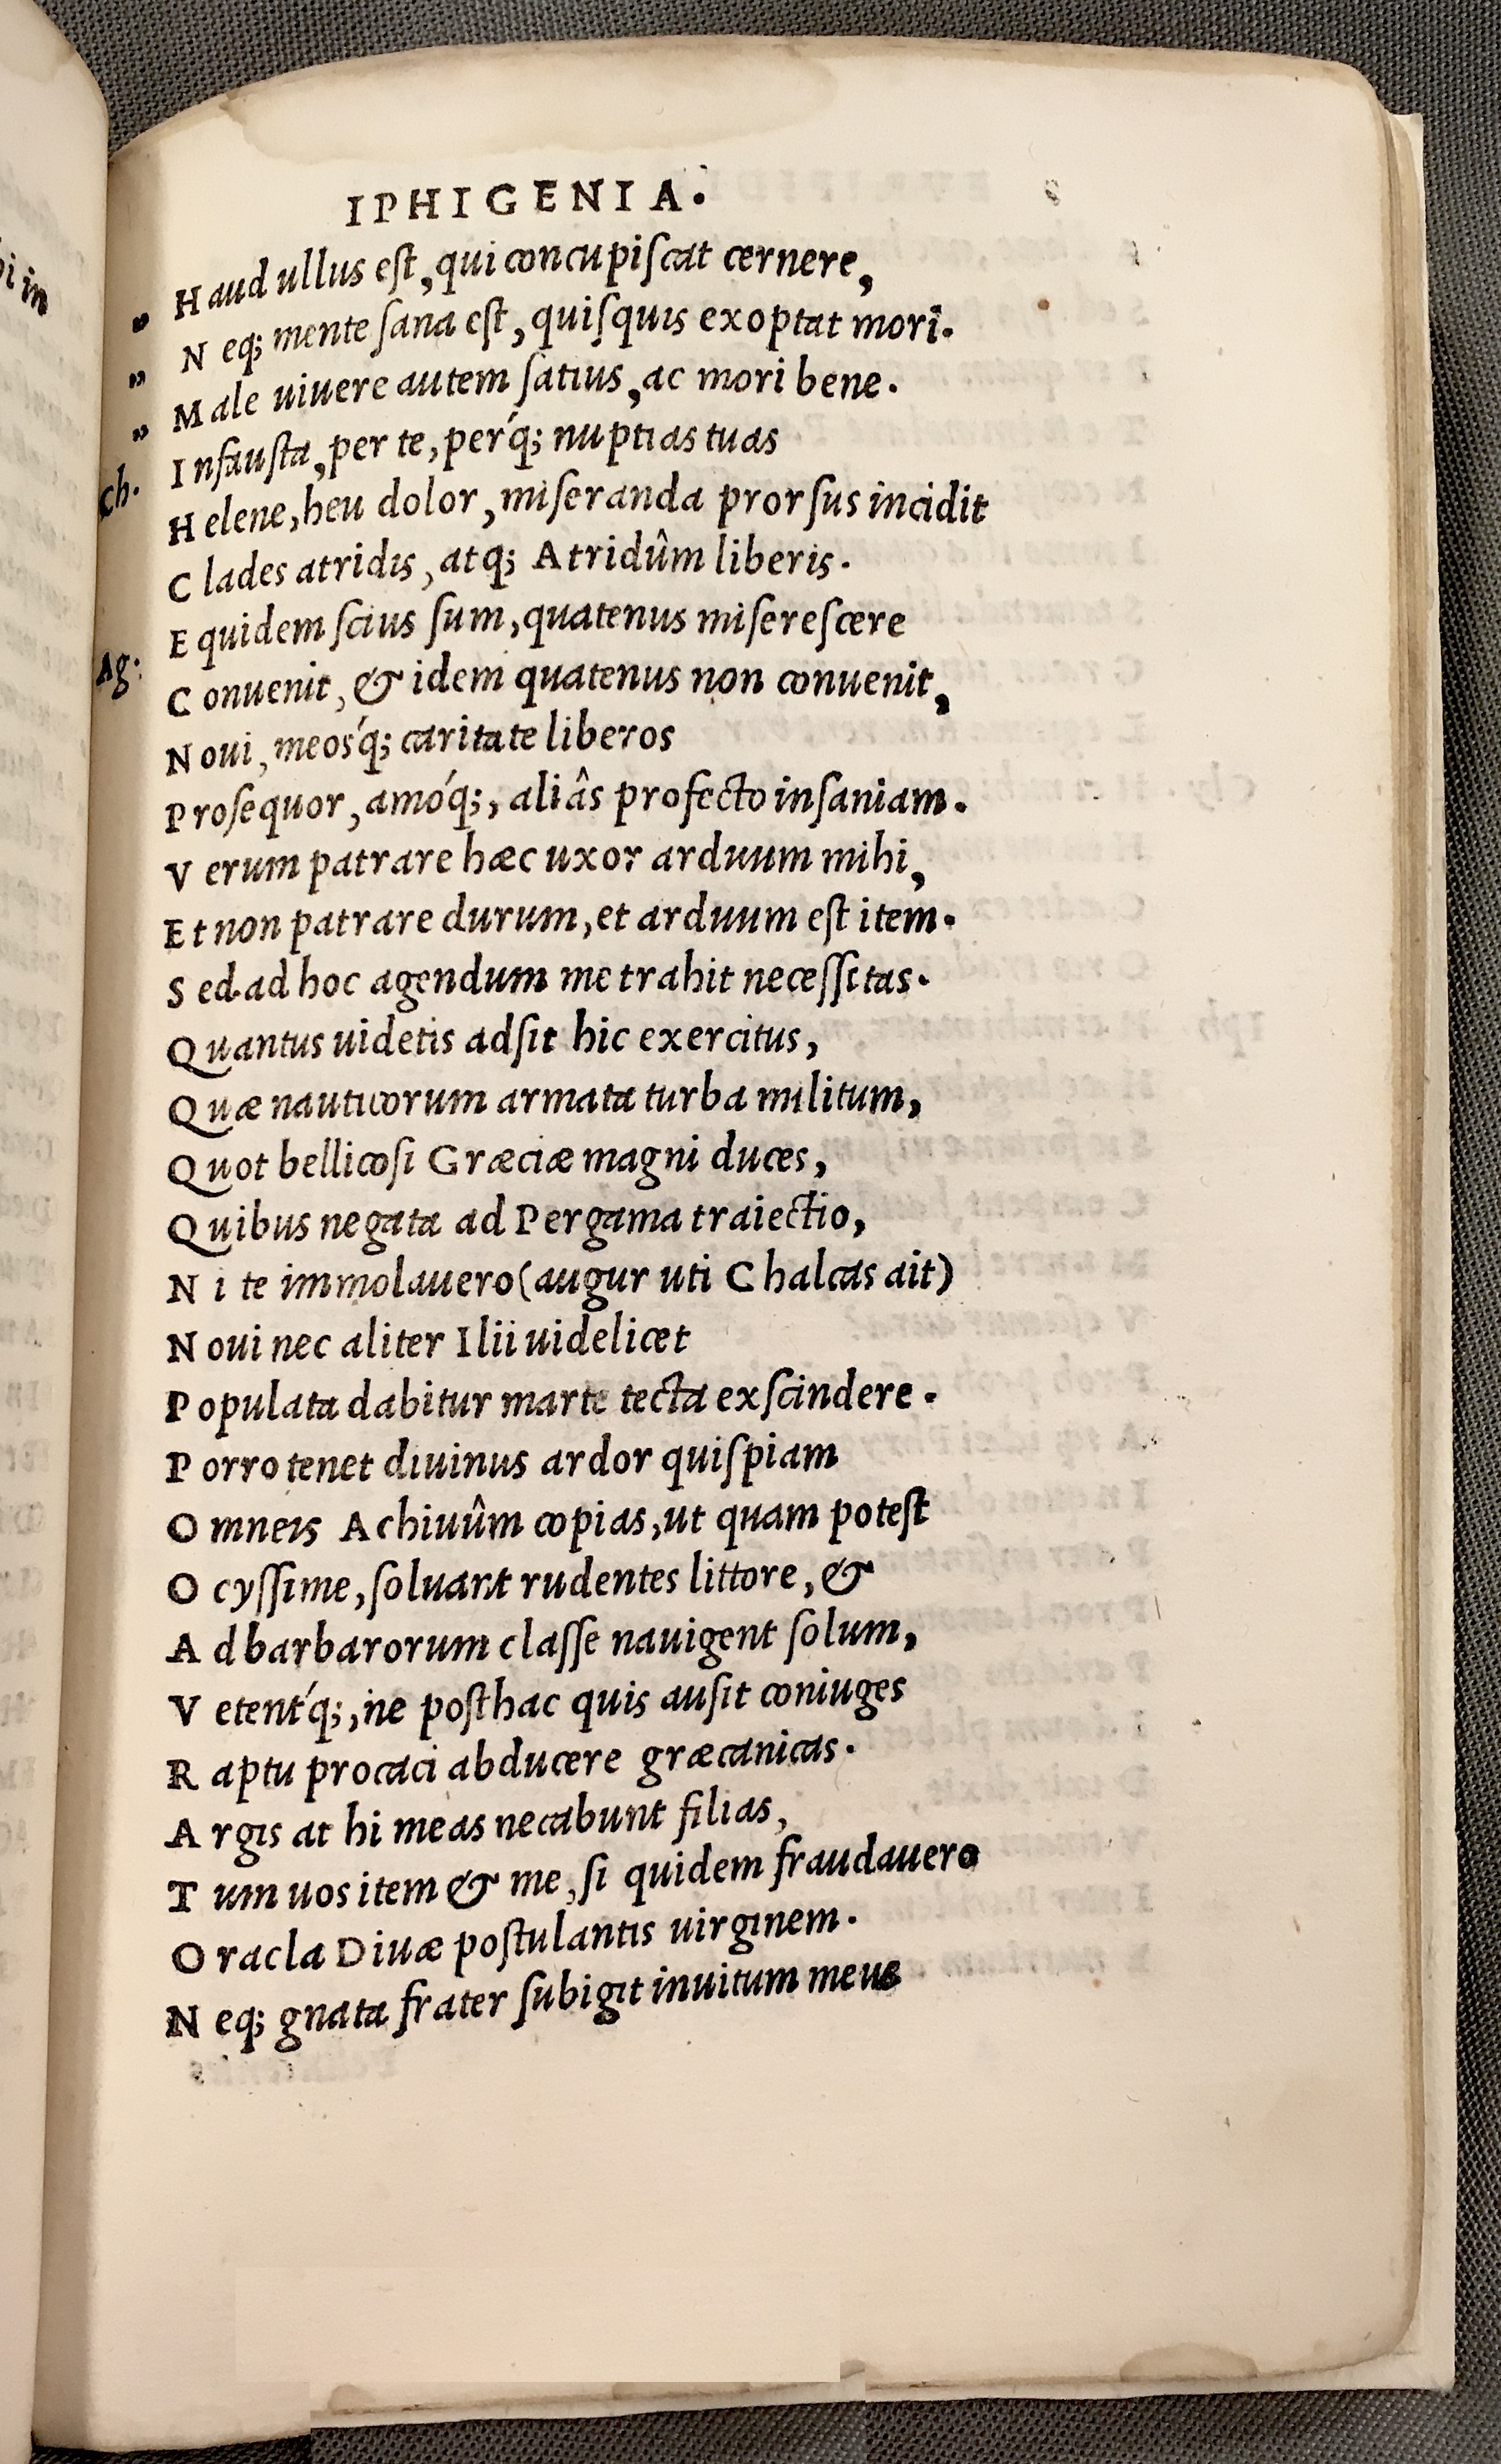 IPHIGENIA.
„ Haud ullus est, qui concupiscat cernere,
„ Neq; mente sana est, quisquis exoptat mori.
„ Male uiuere autem satius, ac mori bene.
Ch. Infausta, per te, perq́; nuptias tuas
Helene, heu dolor, miseranda prorsus incidit
Clades atridis, atq; Atridûm liberis.
Ag: Equidem scius sum, quatenus miserescere
Conuenit, & idem quatenus non conuenit,
Noui, meosq́; caritate liberos
Prosequor, amoq́;, aliâs profecto insaniam.
Verum patrare hæc uxor arduum mihi,
Et non patrare durum, et arduum est item.
Sed ad hoc agendum me trahit necessitas.
Quantus uidetis adsit hic exercitus,
Quæ nauticorum armata turba militum,
Quot bellicosi Græciæ magni duces,
Quibus negata ad Pergama traiectio,
Ni te immolauero (augur uti Chalcas ait)
Noui nec aliter Ilii uidelicet
Populata dabitur marte tecta exscindere.
Porro tenet diuinus ardor quispiam
Omneis Achiuûm copias, ut quam potest
Ocyssime, soluant rudentes littore, &
Ad barbarorum classe nauigent solum,
Vetentq́;, ne posthac quis ausit coniuges
Raptu procaci abducere græcanicas.
Argis at hi meas necabunt filias,
Tum uos item & me, si quidem fraudauero
Oracla Diuæ postulantis uirginem.
Neq; gnata frater subigit inuitum meus